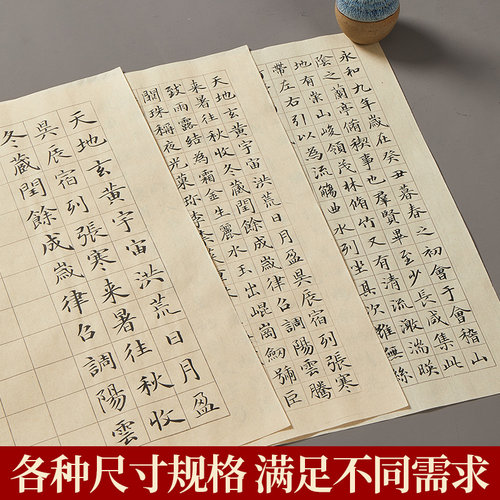 永和九年歲在癸丑暮春之初會于會稽山
陰之蘭亭脩稧事也羣賢畢至少長咸集此
地有崇山峻領茂林脩竹又有清流激湍暎
帶左右引以為流觴曲水列坐其次雖無絲
天地玄黄宇宙洪荒日月盈昃辰宿列張寒
来暑往秋收冬藏閏餘成歲律吕調陽雲騰
致雨露結為霜金生麗水玉出崐崗劒號巨
闕珠稱夜光菓珎李柰
天地玄黄宇宙洪荒日月盈
昃辰宿列張寒来暑往秋收
冬蔵閏餘成歲律吕調陽雲
各种尺寸规格 满足不同需求